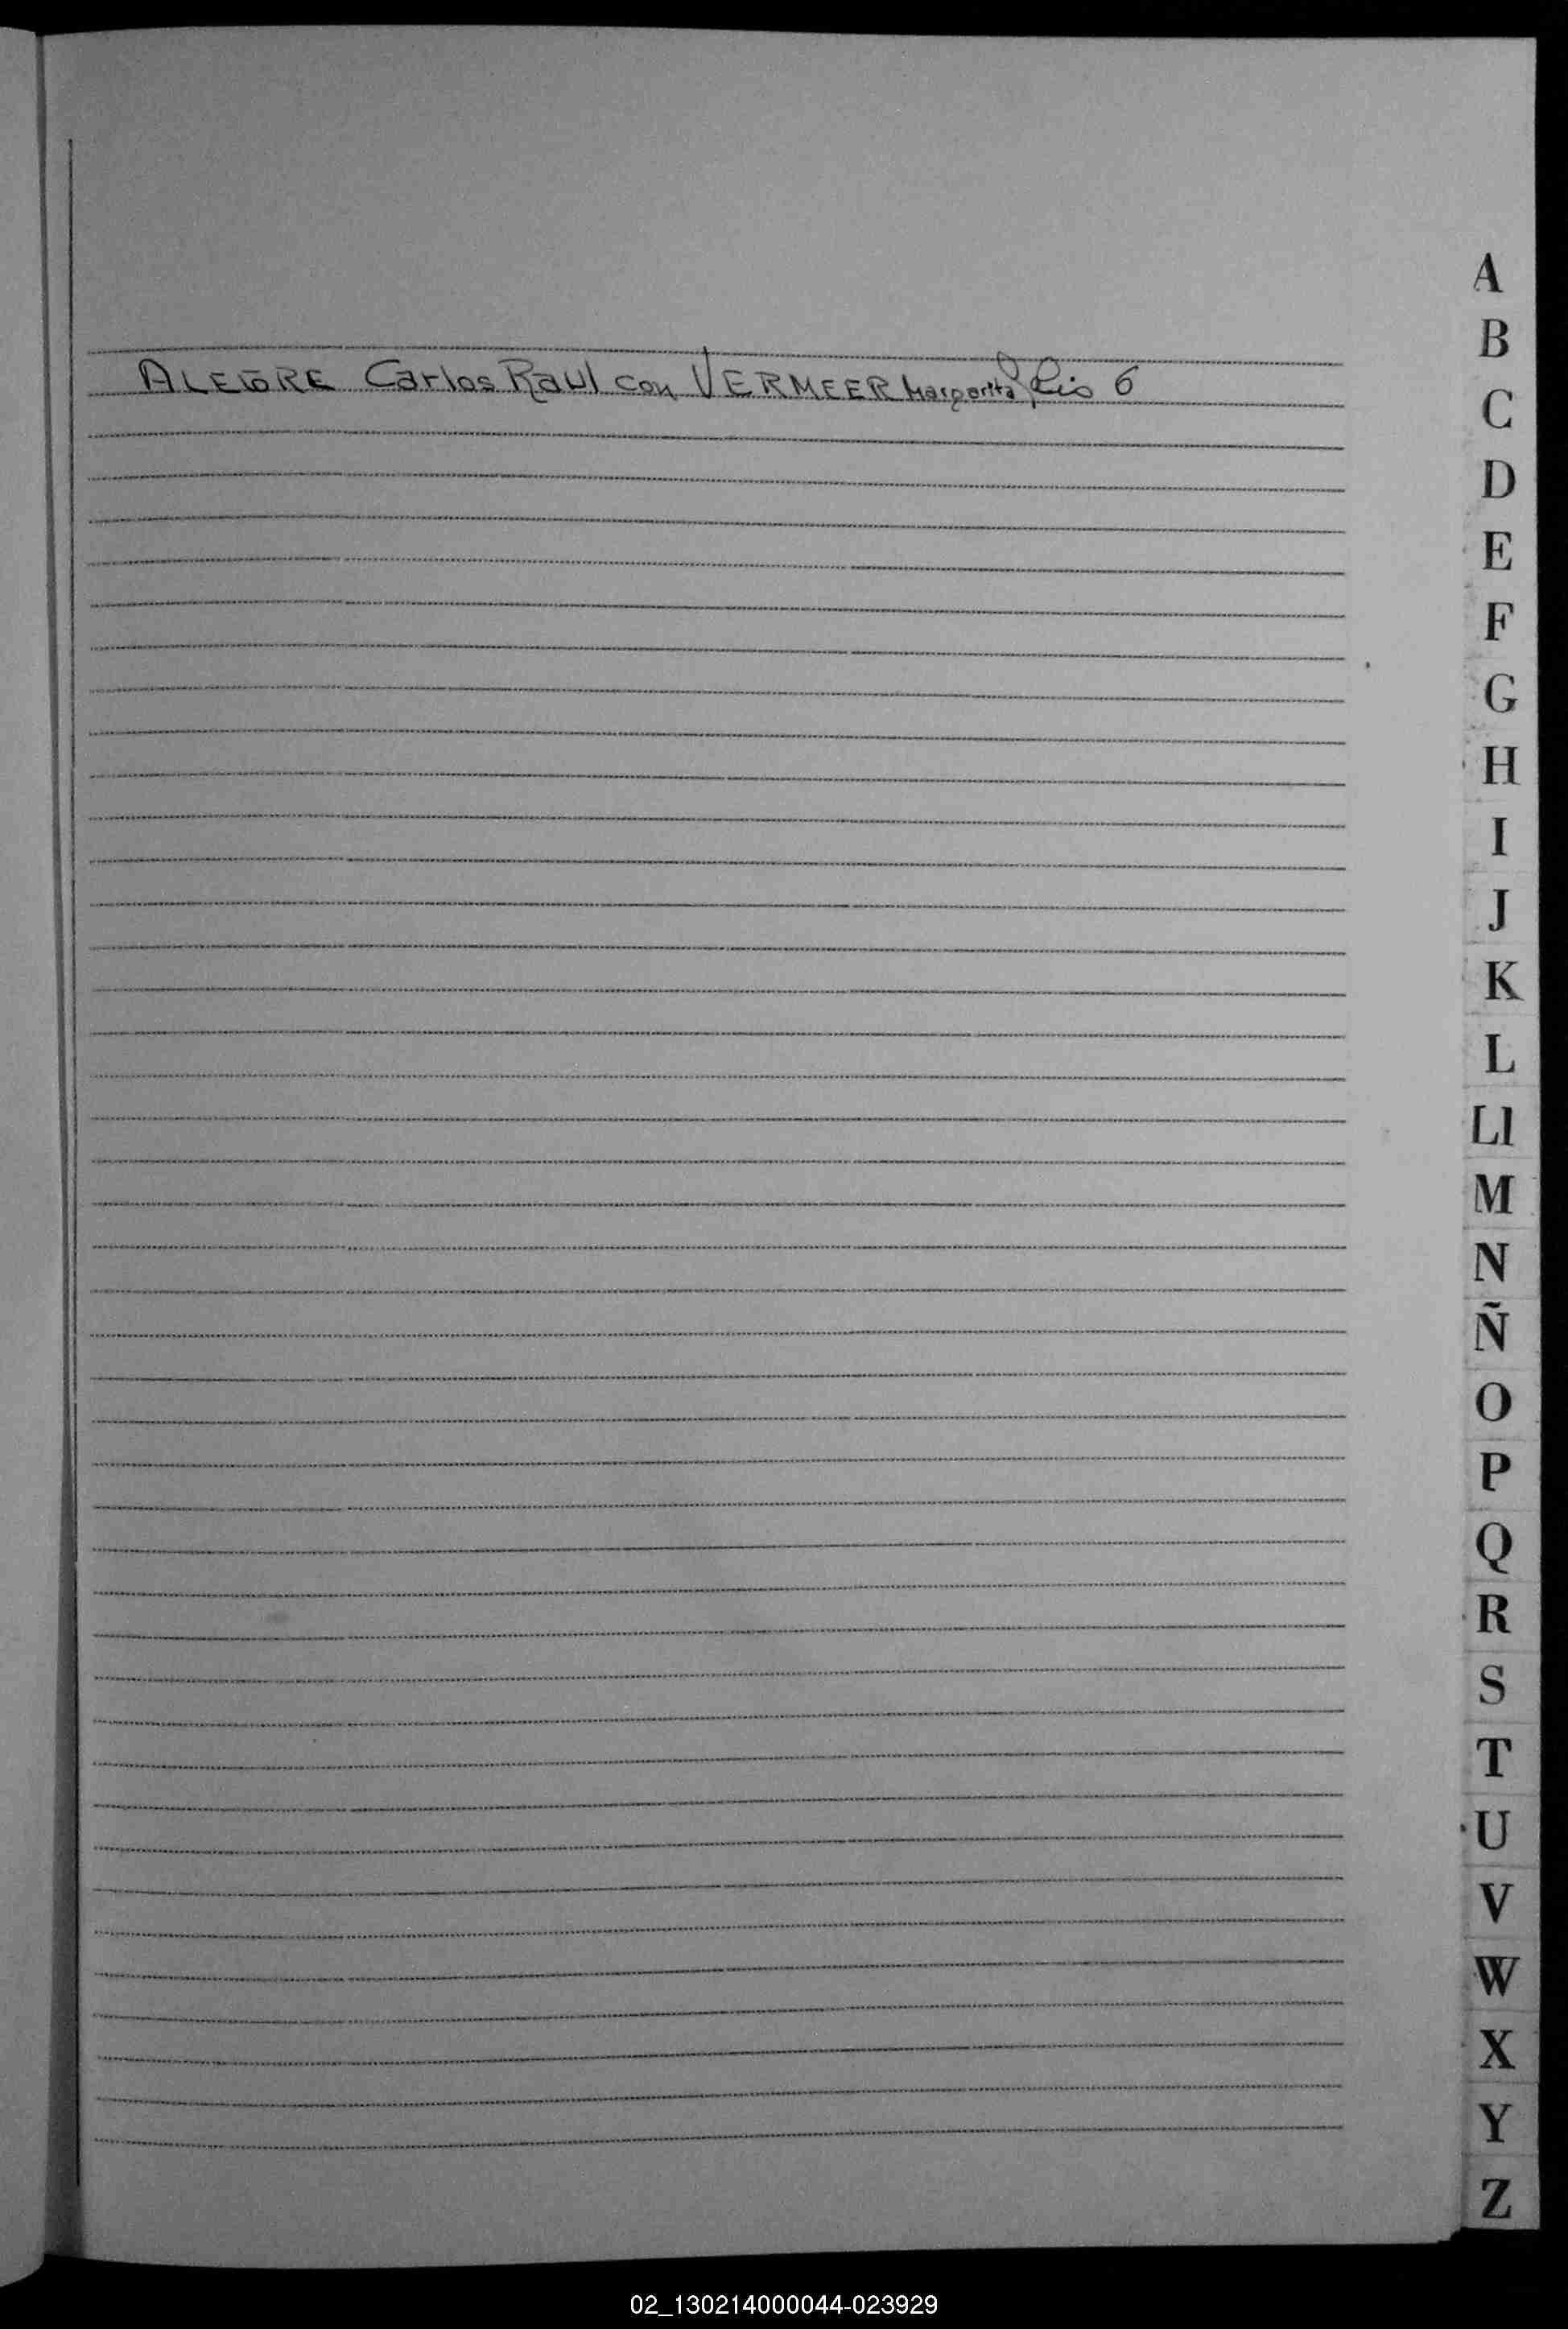 ALEGRE Carlos Raul con VERMEER Margarita folio 6
A
B
C
D
E
F
G
H
I
J
K
L
Ll
M
N
Ñ
O
P
Q
R
S
T
U
V
W
X
Y
Z
02_130214000044-023929